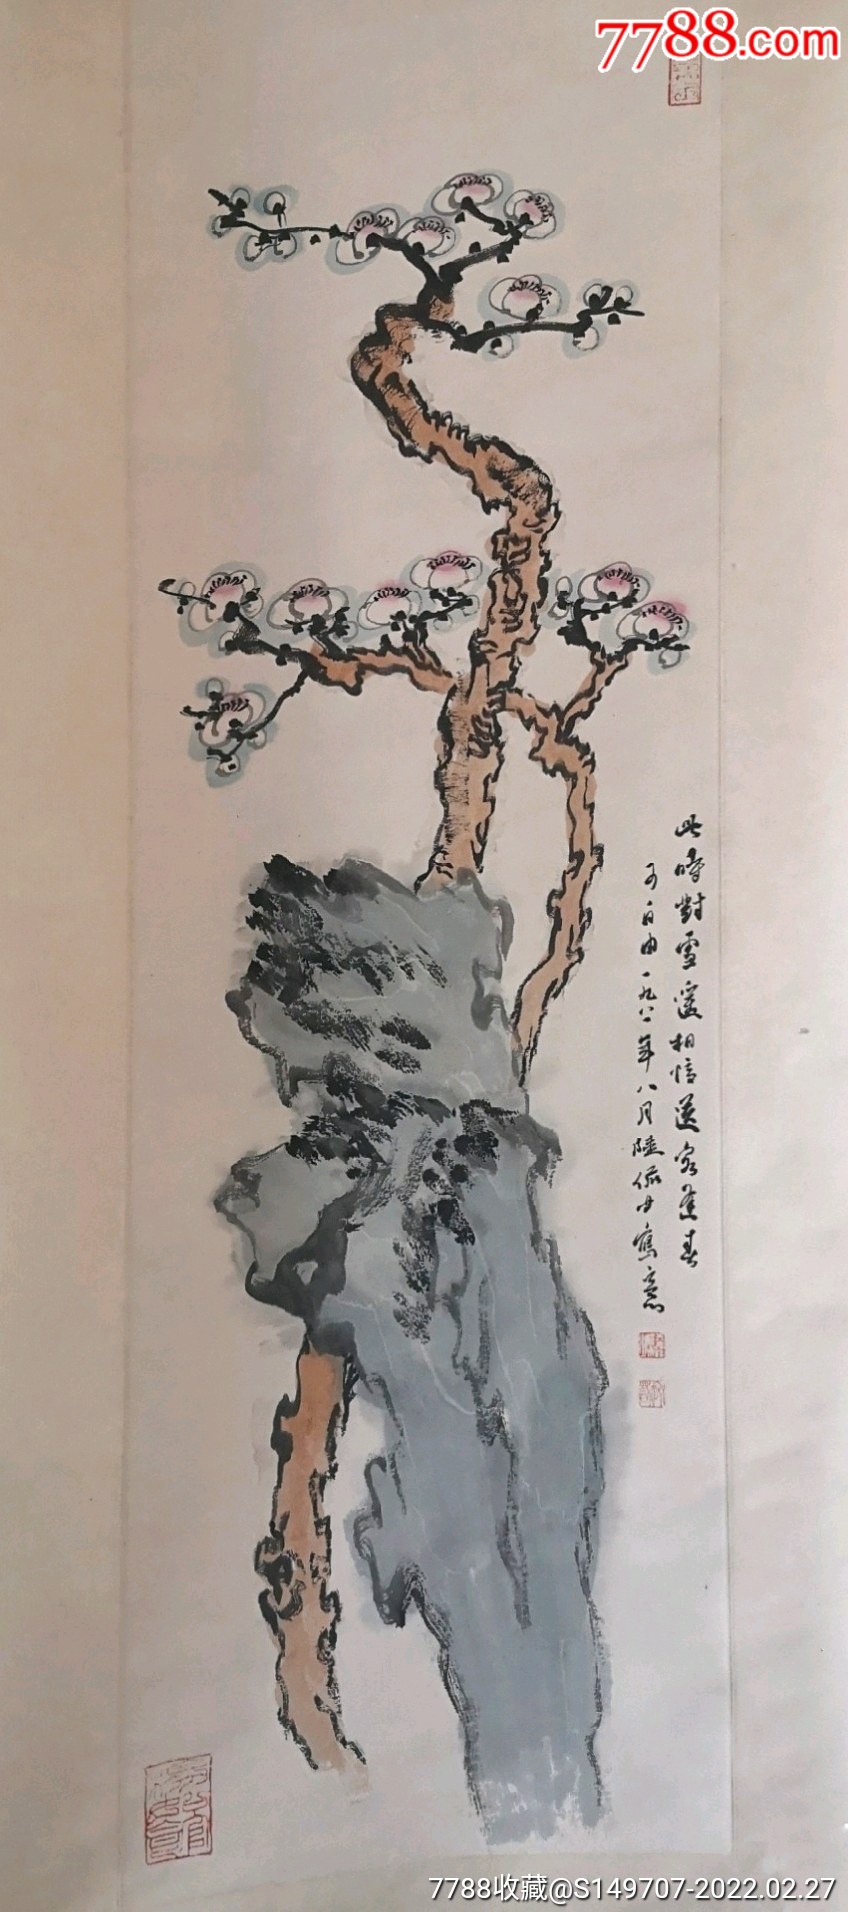 7788.com
此時對雪遥相憶送客逢春
可自由一九八一年八月陸侃如寫意
7788收藏@S149707-2022.02.27